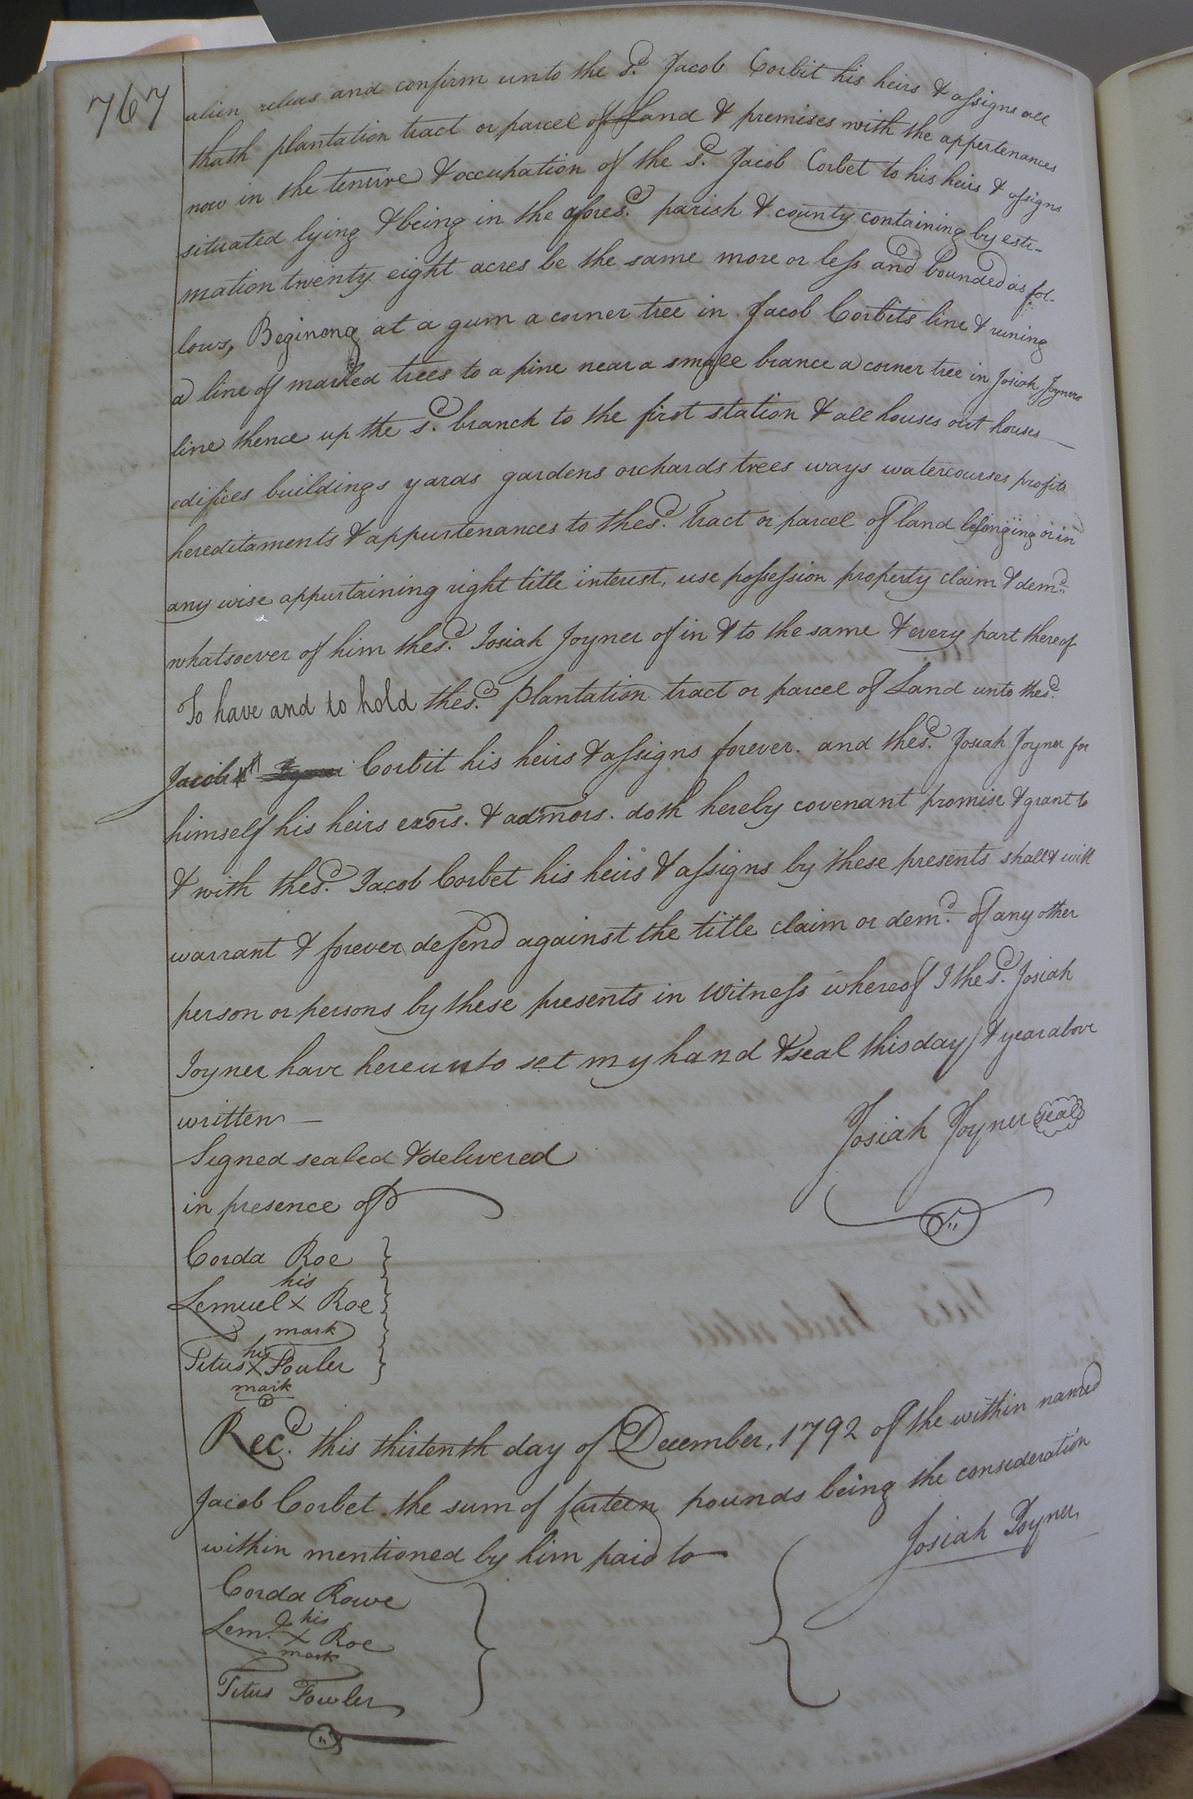 767
alien releas and confirm unto the sd. Jacob Corbit his heirs & assigns all
thath plantation tract or parcel of Land & premises with the appertenances
now in the tenure & occupation of the sd. Jacob Corbet to his heirs & assigns
situated lying & being in the aforesd. parish & county containing by esti-
mation twenty eight acres be the same more or less and bounded as fol-
lows, Begining at a gum a corner tree in Jacob Corbits line & runing
a line of marked trees to a pine near a small brance a corner tree in Josiah Joyners
line thence up the sd. branch to the first station & all houses out houses
edifices buildings yards gardens orchards trees ways watercourses profits
hereditaments & appurtenances to the sd. Tract or parcel of land belonging or in
any wise appurtaining right title interest, use possession property claim & demd.
whatsoever of him the sd. Josiah Joyner of in & to the same & every part thereof
To have and to hold the sd. plantation tract or parcel of Land unto the sd.
Jacob Corbit his heirs & assigns forever. and the sd. Josiah Joyner for
himself his heirs exors. & admors. doth hereby covenant promise & grant to
& with the sd. Jacob Corbet his heirs & assigns by these presents shall & will
warrant & forever defend against the title claim or demd. of any other
person or persons by these presents in Witness whereof I the sd. Josiah
Joyner have hereunto set my hand & seal this day & year above
written
Josiah Joyner seal
Signed sealed & delivered
in presence of
Corda Roe
his
Lemuel X Roe
mark
his
Titus X Fowler
mark
Recd. this thirtenth day of December, 1792 of the within named
Jacob Corbet the sum of forteen pounds being the consideration
within mentioned by him paid to
Josiah Joyner
Corda Rowe
his
Leml. X Roe
mark
Titus Fowler